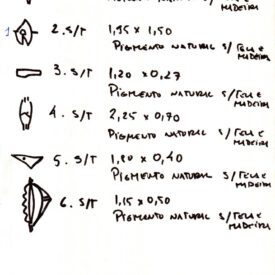 PIGMENTO NATURAL S/ TELA E
MADEIRA
1
2. S/T 1,95 x 1,50
PIGMENTO NATURAL S/ TELA E
MADEIRA
3. S/T 1,20 x 0,27
PIGMENTO NATURAL S/ TELA E
MADEIRA
4. S/T 2,25 x 0,70
PIGMENTO NATURAL S/ TELA E
MADEIRA
5. S/T 1,80 x 0,40
PIGMENTO NATURAL S/ TELA E
MADEIRA
6. S/T 1,15 x 0,50
PIGMENTO NATURAL S/ TELA E
MADEIRA